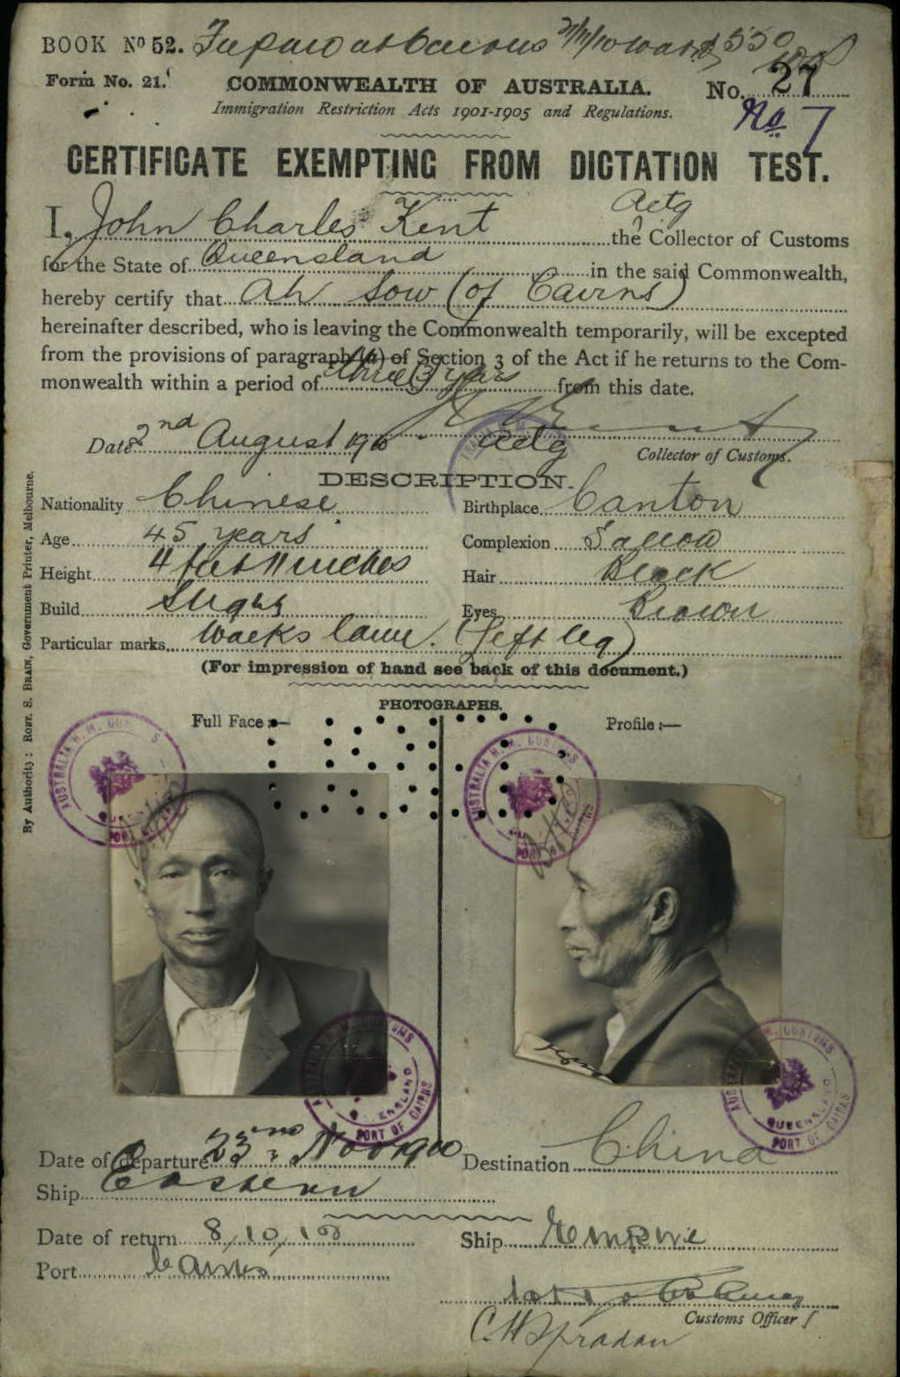 BOOK No 52.
Form No. 21.
COMMONWEALTH OF AUSTRALIA.
No. 27
Immigration Restriction Acts 1901-1905 and Regulations.
No 7
CERTIFICATE EXEMPTING FROM DICTATION TEST.
I, John Charles Kent Actg the Collector of Customs
for the State of Queensland in the said Commonwealth,
hereby certify that Ah Sow (of Cairns)
hereinafter described, who is leaving the Commonwealth temporarily, will be excepted
from the provisions of paragraph (a) of Section 3 of the Act if he returns to the Com-
monwealth within a period of three 3 years from this date.
Date 2nd August 1910 Actg Collector of Customs.
DESCRIPTION.
Nationality Chinese Birthplace Canton
Age 45 years Complexion Sallow
Height 4 feet 11 inches Hair Black
Build Slight Eyes Brown
Particular marks Walks lame. (left leg)
(For impression of hand see back of this document.)
PHOTOGRAPHS.
Full Face :— Profile :—
By Authority: ROBT. S. BRAIN, Government Printer, Melbourne.
AUSTRALIA H.M. CUSTOMS
PORT OF
AUSTRALIA H.M. CUSTOMS
PORT OF
PORT OF CAIRNS
H.M. CUSTOMS
QUEENSLAND
PORT OF
Date of departure 23rd Nov 1910 Destination China
Ship Eastern
Date of return 8/10/12 Ship Empire
Port Cairns
Customs Officer